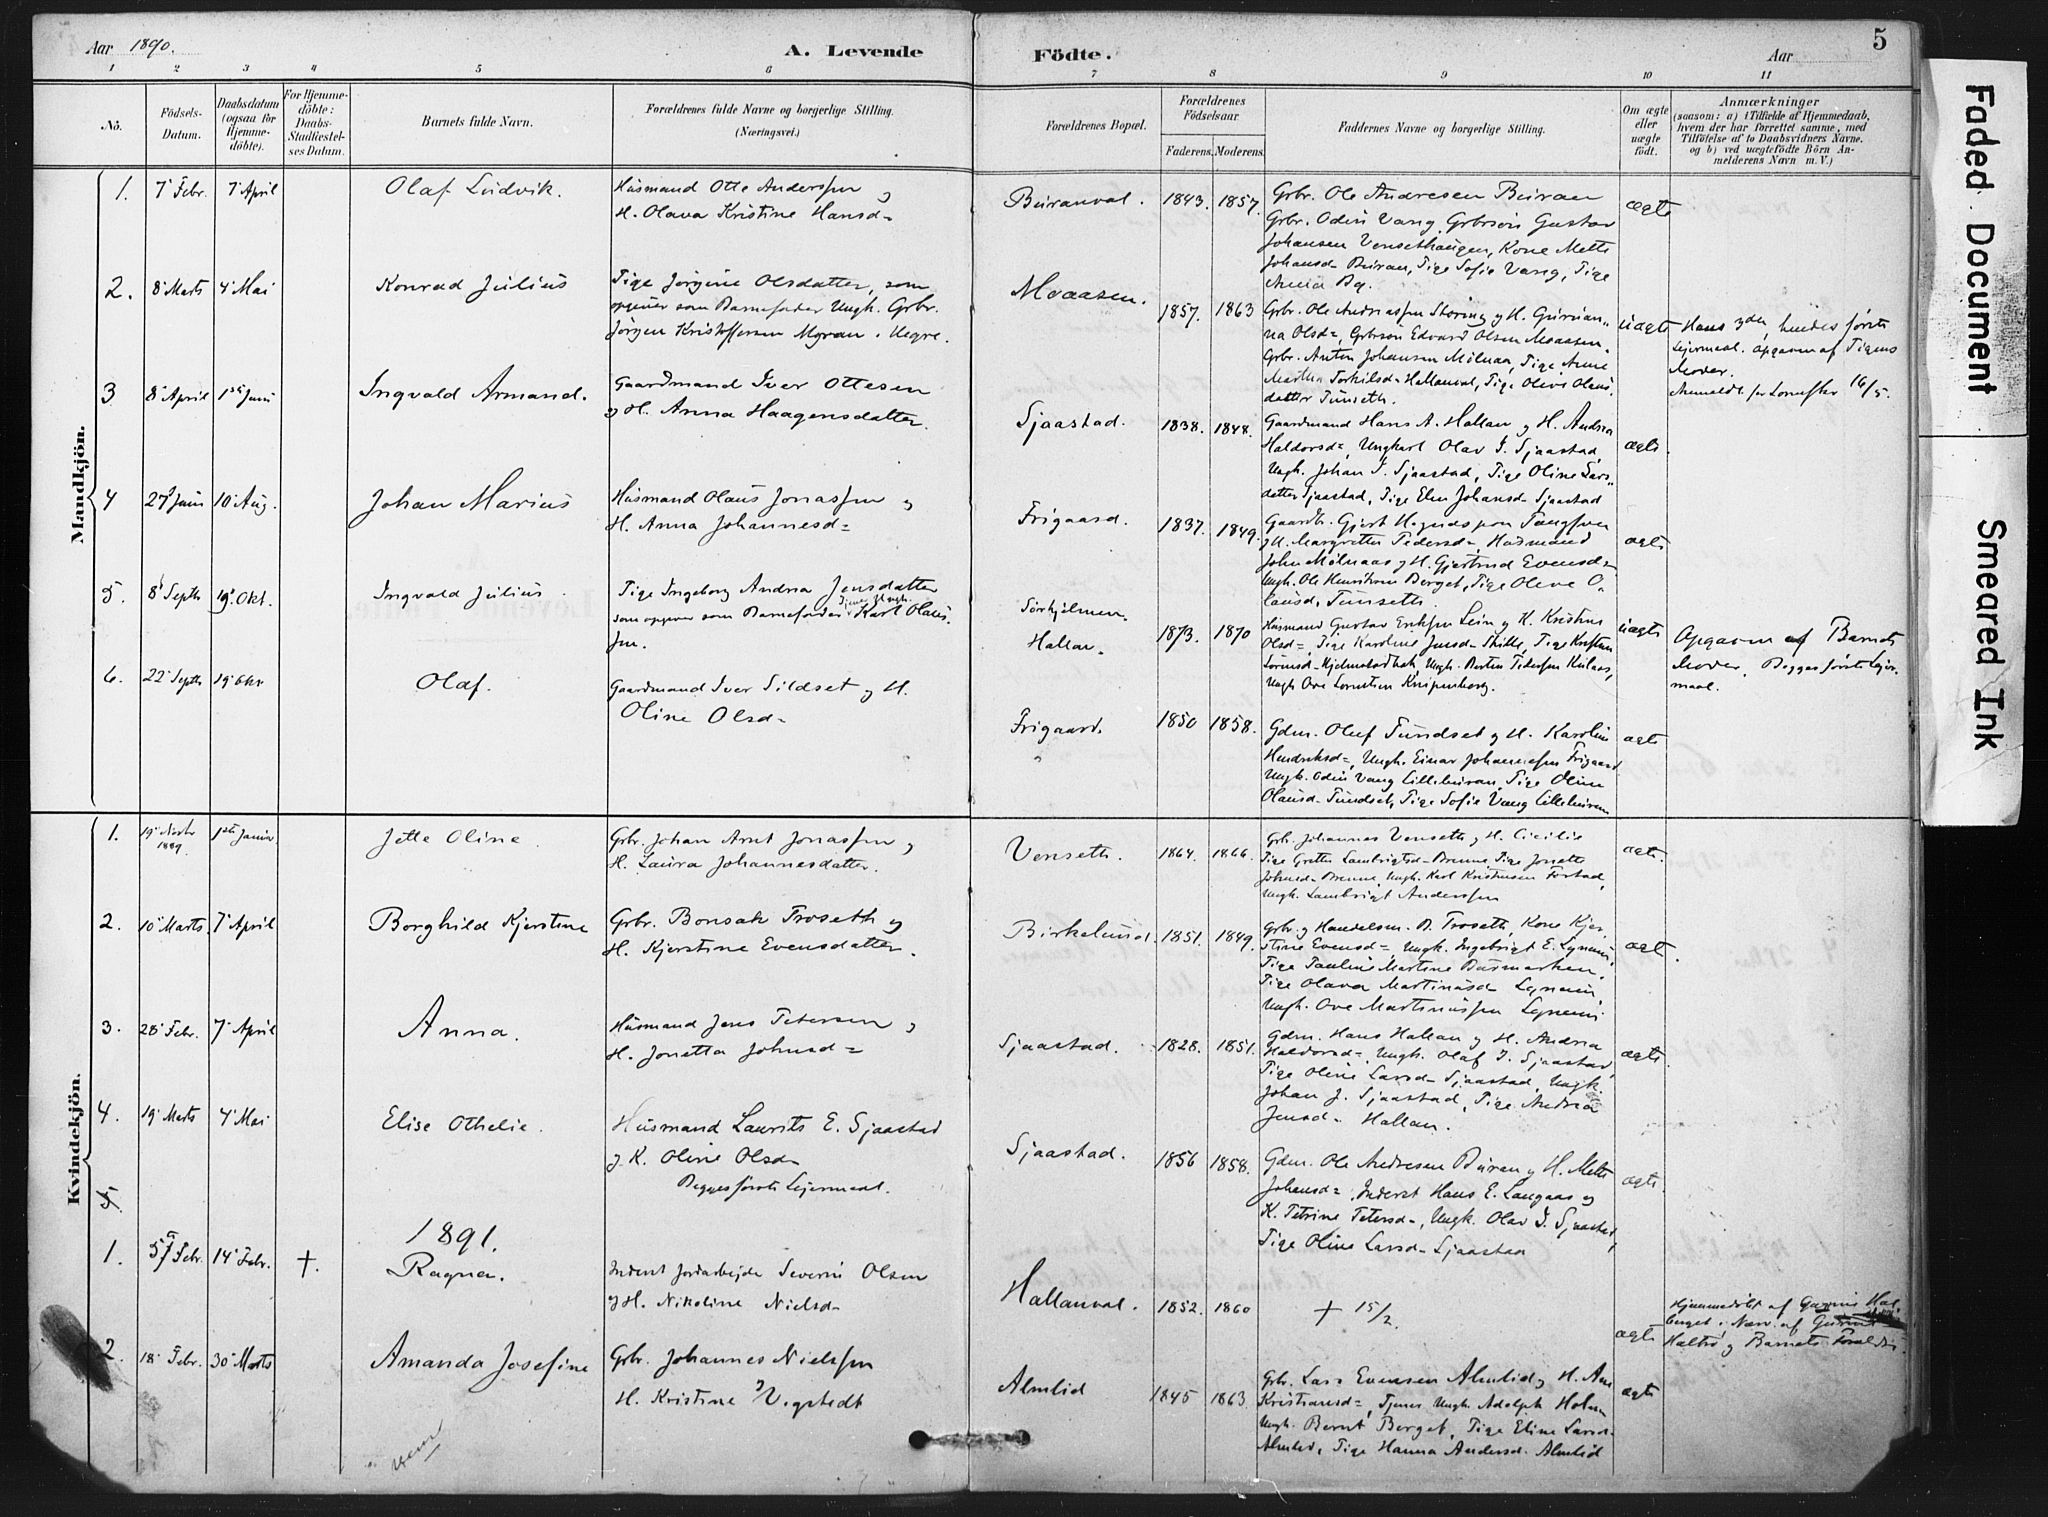 Aar 1890.
A. Levende Födte.
Aar
5
1 2 3 4 5 6 7 8 9 10 11
Nô.
Födsels-Datum.
Daabsdatum (ogsaa for Hjemme-döbte).
For Hjemme-döbte: Daabs-Stadfæstel-ses Datum.
Barnets fulde Navn.
Forældrenes fulde Navne og borgerlige Stilling. (Næringsvei.)
Forældrenes Bopæl.
Forældrenes Födselsaar.
Faderens. Moderens.
Faddernes Navne og borgerlige Stilling.
Om ægte eller uægte födt.
Anmærkninger
(saasom: a) i Tilfælde af Hjemmedaab, hvem der har forrettet samme, med Tilföielse af to Daabsvidners Navne. og b) ved uægtefödte Börn An-melderens Navn m. V.)
Mandkjön.
1. 7 Febr. 7 April Olaf Ludvik.
Husmand Otte Anderssen og
H. Olava Kristine Hansd=
Buranval. 1843. 1857.
Grbr. Ole Andresen Buran
Grbr. Odin Vang, Grbrsön Gustav
Johansen Vensethaugen, Kone Mette
Johansd= Buran, Pige Sofie Vang, Pige
ægte
2. 8 Marts 4 Mai Konrad Julius
Pige Jörgine Olsdatter, som
opgiver som Barnefader Ungk. Grbr.
Jörgen Kristoffersen Myran i Hegre.
Moaasen. 1857. 1863
Grbr. Ole Andreassen Storing og H. Gurian-
na Olsd=, Grbrsön Edvard Olsen Moaasen,
Grbr. Anton Johansen Milnaa, Pige Anne
Martha Torkilsd= Hallanval, Pige Olive Olaus-
datter Tunseth.
uægte
Hans 3die, hendes förste
Leiermaal. Opgaven af Pigens
Moder.
3 8 April 1ste Juni Ingvald Armand.
Gaardmand Iver Ottesen
og H. Anna Haagensdatter.
Sjaastad. 1838. 1848.
Gaardmand Hans A. Hallan og H. Andrea
Haldorsd=, Ungkarl Olav J. Sjaastad,
Ungk. Johan J. Sjaastad, Pige Oline Lars-
datter Sjaastad, Pige Elen Johansd= Sjaastad
ægte
4 27 Juni 10 Aug. Johan Marius
Husmand Olaus Jonassen og
H. Anna Johannesd=
Frigaard. 1837. 1849.
og H. Margrethe Pedersd=, Husmand
John Milnaas og H. Gjertrud Evensd=
Ungk. Ole Henriksen Berget, Pige Olive O-
lausd, Tunseth.
ægte
5. 8 Septb 19 Okt. Ingvald Julius.
Pige Ingeborg Andrea Jensdatter
som opgiver som Barnefader Tjener Ungk. Karl Olaus-
sen.
Hallan. 1873. 1870
Husmand Gustav Eriksen Lein og H. Kristine
Olsd=, Pige Karoline Jensd=
Ungk. Ove Lorentsen Knipenborg.
uægte
Opgaven af Barnets
Moder. Begges förste Leier-
maal.
6. 22 Septb 19 Okt Olaf.
Gaardmand Iver Sildset og H.
Oline Olsd=
Frigaard. 1850 1858.
Gdm. Oluf Tundset og H. Karoline
Hendriksd=, Ungk. Einar Johannessen Frigaard
Ungk. Odin Vang Lilleburan, Pige Oline
Olausd= Tundset, Pige Sofie Vang Lilleburan
ægte
Kvindekjön.
1. 19 Novbr 1889. 1ste Januar Jette Oline.
Grbr. Johan Arnt Jonassen og
H. Laura Johannesdatter.
Venseth. 1864. 1866.
Grbr. Johannes Venseth og H. Cicilie
Pige Grethe Lambrigtsd= Brenne, Pige Jonette
Johnsd= Brenne, Ungk. Karl Kristensen Forstad,
Ungk. Lambrigt Anderssen
ægte.
2. 10 Marts. 7 April Borghild Kjerstine
Grbr. Bonsak Troseth og
H. Kjerstine Evensdatter.
Birkelund. 1851. 1849.
Grbr. og Handelsm. B. Troseth, Kone Kjer-
stine Evensd=, Ungk. Ingebrigt E. Lynum,
Pige Pauline Martine Busmarken,
Pige Olava Martinusd Lynum,
Ungk. Ove Martinussen Lynum.
ægte.
3. 28 Febr. 7 April Anna.
Husmand Jens Petersen og
H. Jonetta Johnsd=
Sjaastad. 1828. 1851.
Gdm. Hans Hallan og H. Andrea
Haldorsd=, Ungk. Olaf J. Sjaastad,
Pige Oline Larsd= Sjaastad, Ungk.
Johan J. Sjaastad, Pige Andrea
Jensd= Hallan.
ægte.
4. 19 Marts 4 Mai Elise Othelie.
Husmand Laurits E. Sjaastad
og K. Oline Olsd=
Begges förste Leiermaal.
Sjaastad. 1856 1858.
Gdm. Ole Andresen Buran og H. Mette
Johansd=, Inderst Hans E. Langaas og
K. Petrine Petersd=, Ungk. Olav J. Sjaastad,
Pige Oline Larsd= Sjaastad
ægte.
5.
1891.
1. 5 Febr. 14 Febr. +. Ragna.
Inderst Jordarbejder Severin Olsen
og H. Nikoline Nielsd=
Hallanval. 1852. 1860
+ 15/2.
ægte
Hjemmedöbt af
berget i Nærv. af
Halbo og Barnets Forældre.
2. 18 Febr. 30 Marts Amanda Josefine
Grbr. Johannes Nielssen
og H. Kristine Vigstedt
Almlid 1845 1863.
Grbr. Lars Evensen Almlid og H. Ane
Kristiansd=, Tjener Ungk. Adolph Holmen
Ungk. Bernt Berget, Pige Eline Larsd.
Almlid, Pige Hanna Andersd. Almlid
ægte
Faded Document
Smeared Ink